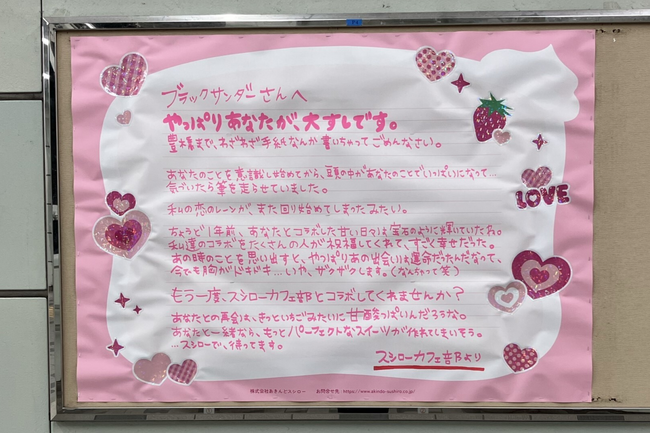 ブラックサンダーさんへ
やっぱりあなたが、大すしです。
豊橋まで、わざわざ手紙なんか書いちゃってごめんなさい。
あなたのことを意識し始めてから、頭の中があなたのことでいっぱいになって…
気づいたら筆を走らせていました。
私の恋のレーンが、また回り始めてしまったみたい。
ちょうど1年前、あなたとコラボした甘い日々は宝石のように輝いていたね。
私達のコラボをたくさんの人が祝福してくれて、すごく幸せだった。
あの時のことを思い出すと、やっぱりあの出会いは運命だったんだなって、
今でも胸がドキドキ…いや、ザクザクします。(なんちゃって笑)
もう一度、スシローカフェ部とコラボしてくれませんか?
あなたとの再会は、きっといちごみたいに甘酸っぱいんだろうな。
あなたと一緒なら、もっとパーフェクトなスイーツが作れてしまいそう。
…スシローで、待ってます。
スシローカフェ部より
LOVE
株式会社あきんどスシロー お問合せ先 https://www.akindo-sushiro.co.jp/